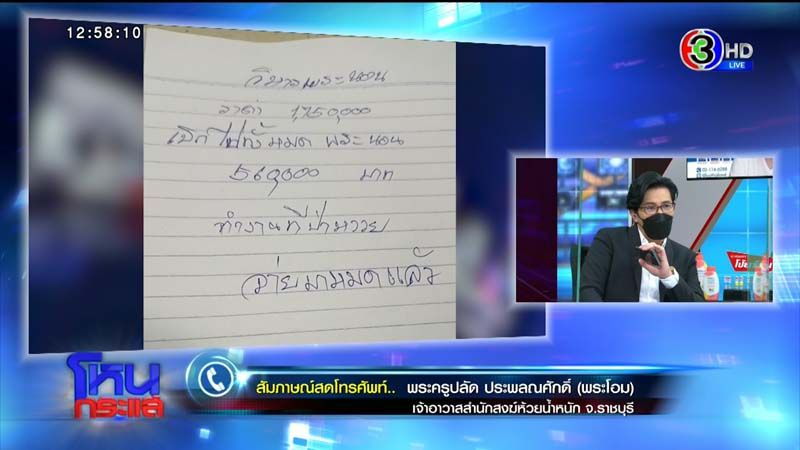 12:58:10
3 HD
LIVE
วิหารพระนอน
ราคา 1,750,000
เบิกไปทั้งหมด พระนอน
560,000 บาท
ทำงานที่ป่าหวาย
จ่ายมาหมดแล้ว
โหนกระแส
สัมภาษณ์สดโทรศัพท์.. พระครูปลัด ประพลณศักดิ์ (พระโอม)
เจ้าอาวาสสำนักสงฆ์ห้วยน้ำหนัก จ.ราชบุรี